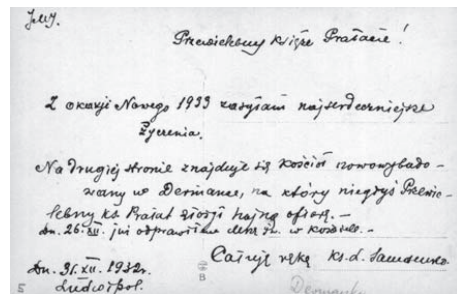 Przewielebny Księże Prałacie!
Z okazji Nowego 1933 zasyłam najserdeczniejsze
życzenia.
Na drugiej stronie znajduje się kościół nowowybudo-
wany w Dermance, na który niegdyś Przewie-
lebny ks. Prałat złożył hojną ofiarę. –
Dn. 26.XII. już odprawiłem w kościele. –
Całuję rękę ks. L.
Dn. 31.XII. 1932r.
Ludwipol.
Dermanka
5
B